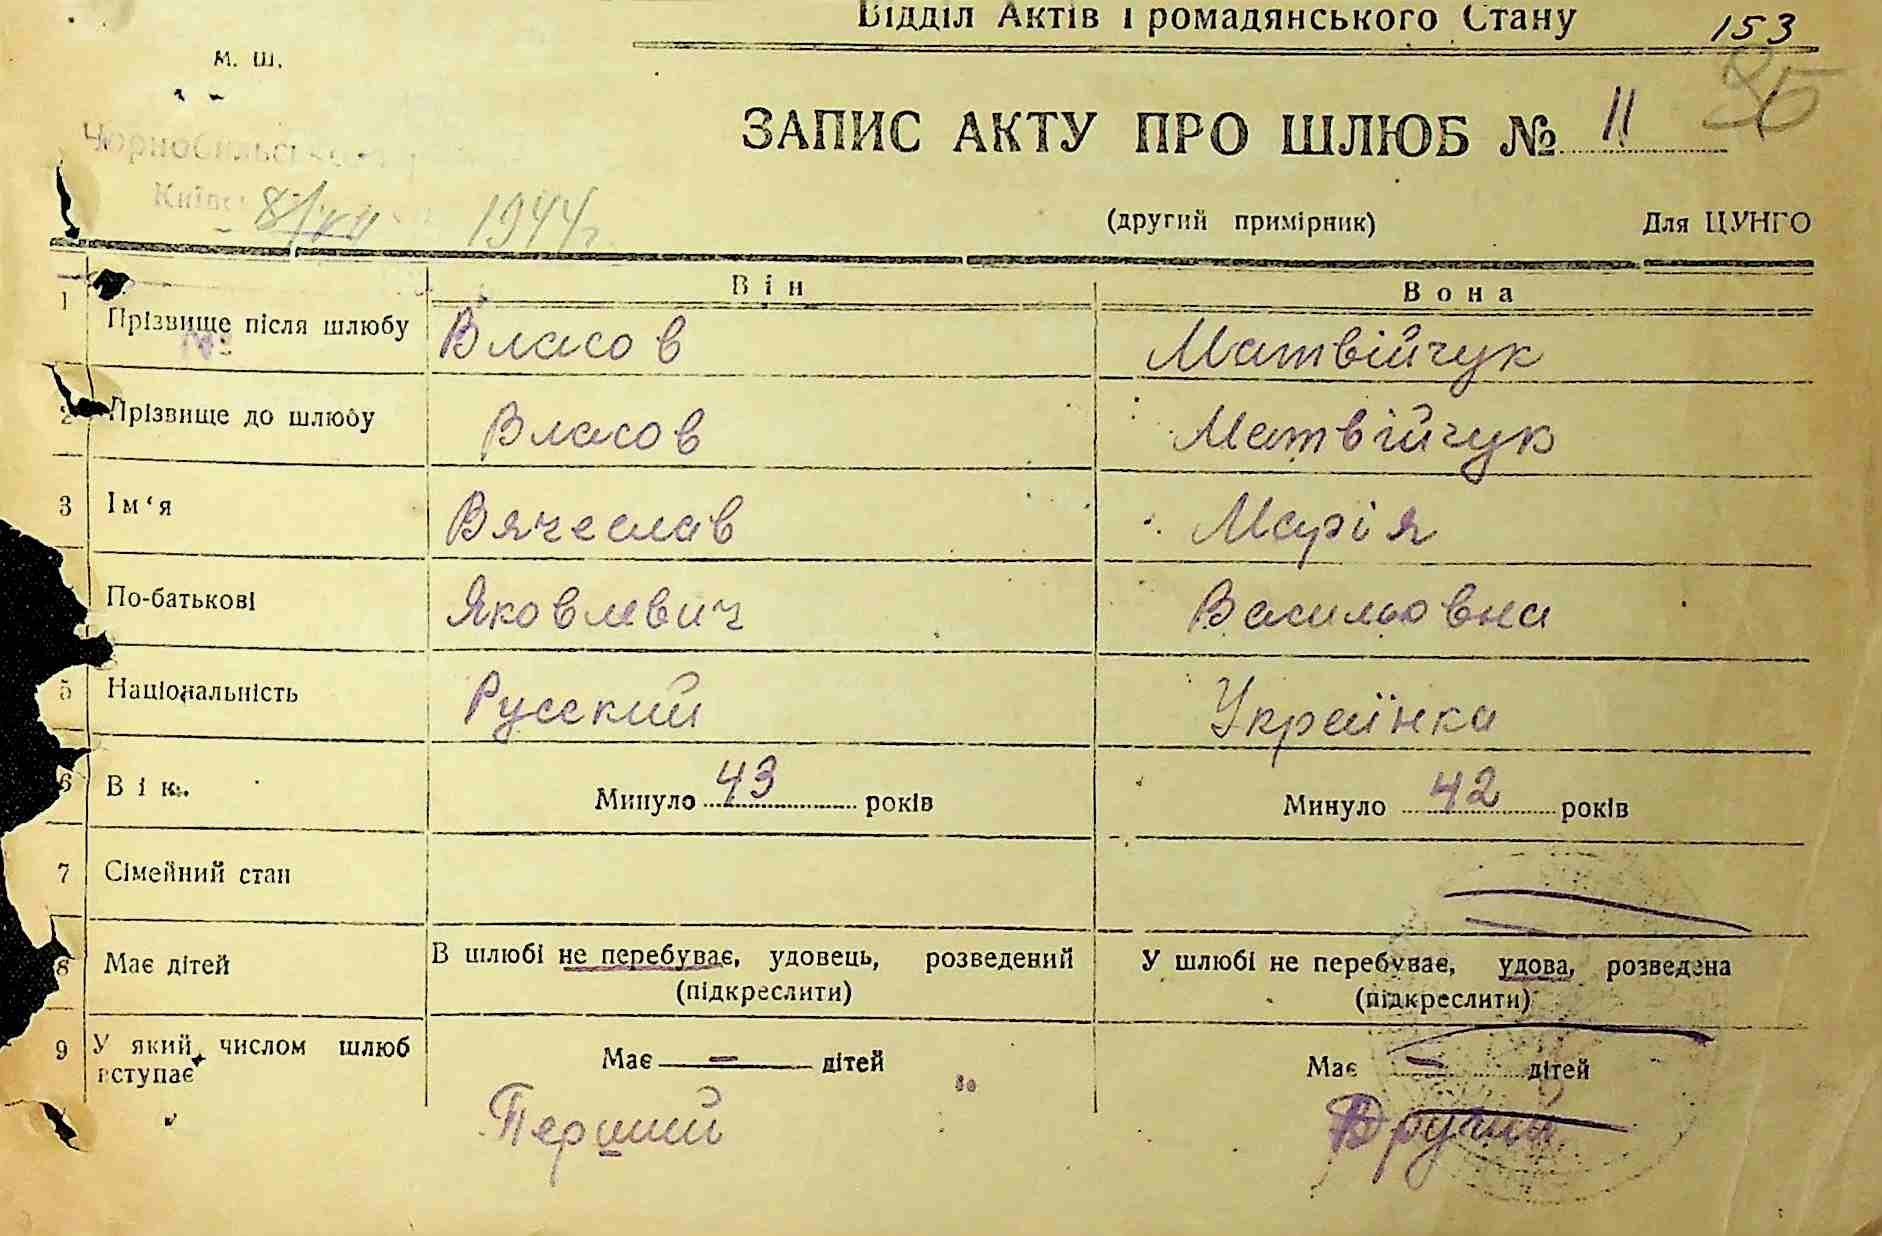 Відділ Актів Громадянського Стану 153
М. Ш.
95
ЗАПИС АКТУ ПРО ШЛЮБ № 11
Чорнобильсь
Київс 8/XII 1944 г.
(другий примірник) Для ЦУНГО
Він Вона
1 Прізвище після шлюбу Власов Матвійчук
№
2 Прізвище до шлюбу Власов Матвійчук
3 Ім‘я Вячеслав Марія
По-батькові Яковлевич Васильовна
5 Національність Русский Українка
6 Вік. Минуло 43 років Минуло 42 років
7 Сімейний стан
8 Має дітей В шлюбі не перебуває, удовець, розведений У шлюбі не перебуває, удова, розведена
(підкреслити) (підкреслити)
9 У який числом шлюб Має — дітей Має — дітей
вступає
Перший Другий